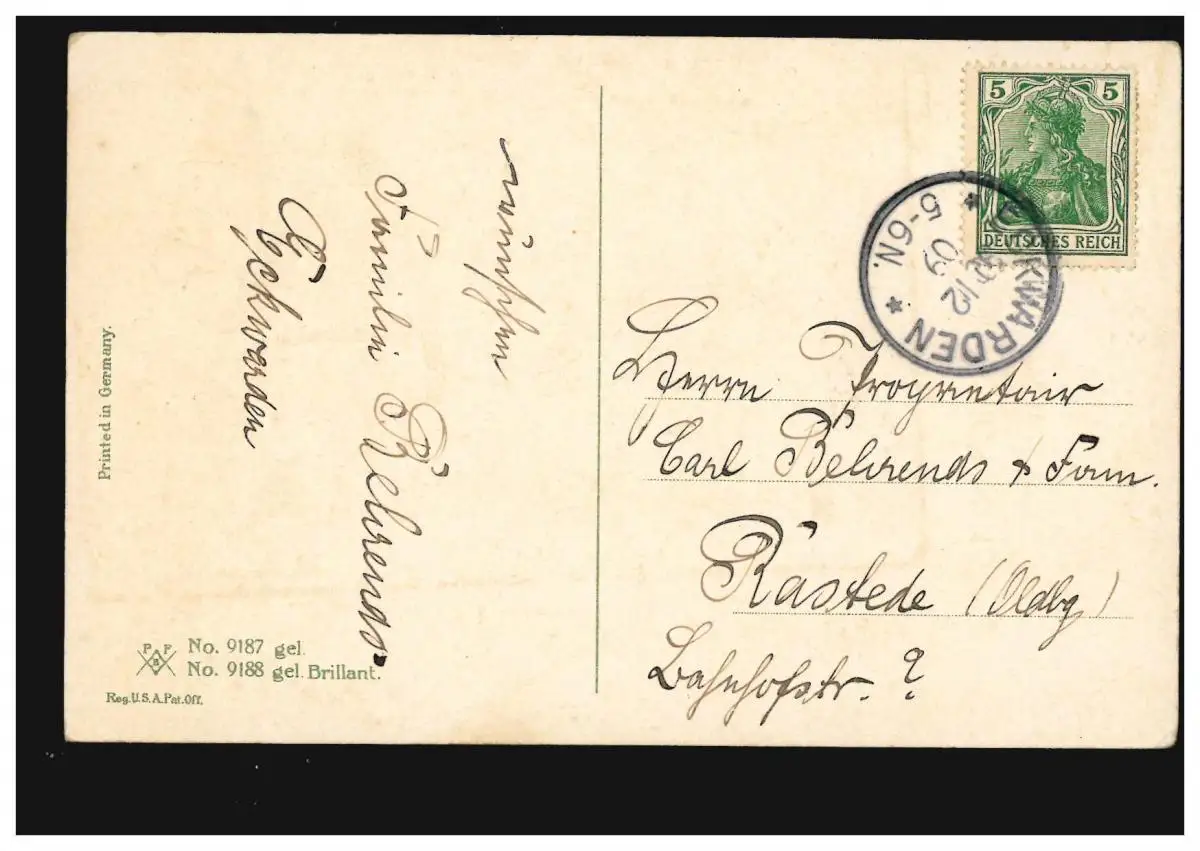 wünschen
Familie Behrends
Eckwarden
Printed in Germany.
P F
B
No. 9187 gel.
No. 9188 gel. Brillant.
Reg. U.S.A. Pat. Off.
5 5
DEUTSCHES REICH
* ECKWARDEN *
12
09
5-6N.
Herrn Proprietair
Carl Behrends & Fam.
Rastede (Oldbg)
Bahnhofstr. ?